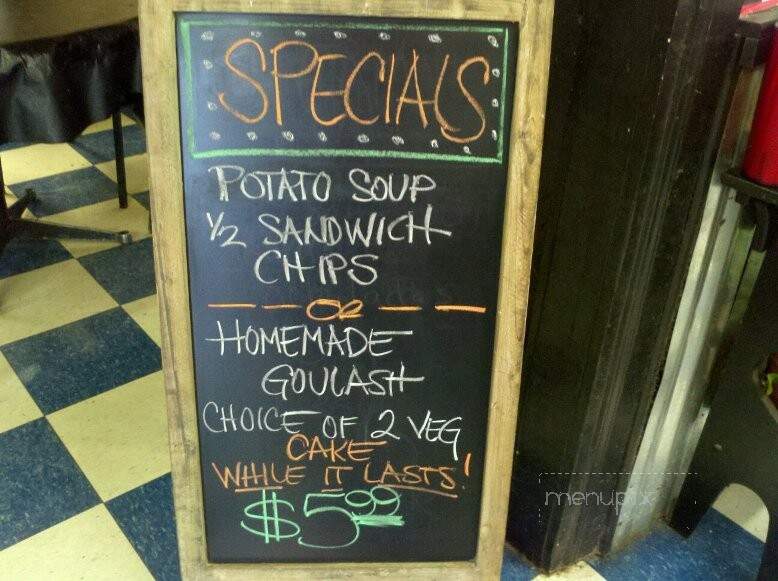 SPECIALS
POTATO SOUP
1/2 SANDWICH
CHIPS
— — OR — —
HOMEMADE
GOULASH
CHOICE OF 2 VEG
CAKE
WHILE IT LASTS!
$5.99
menupix